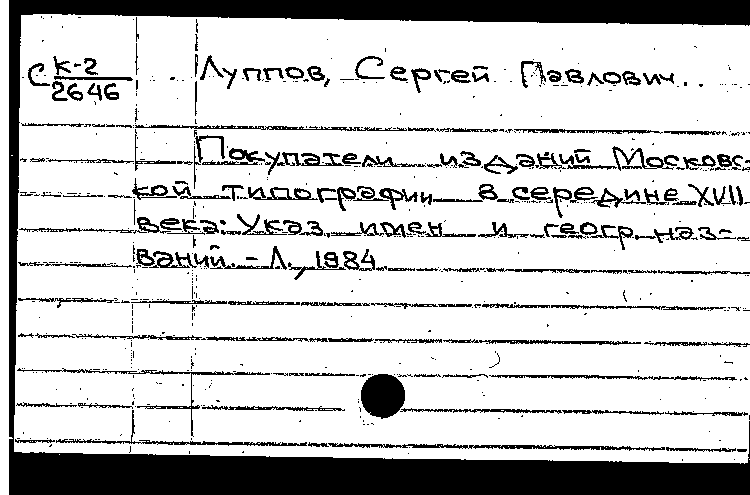 С К-2 Луппов, Сергей Павлович.
2646
Покупатели изданий Московс-
кой типографии в середине XVII
века: Указ. имен и геогр. наз-
ваний. - Л., 1984.